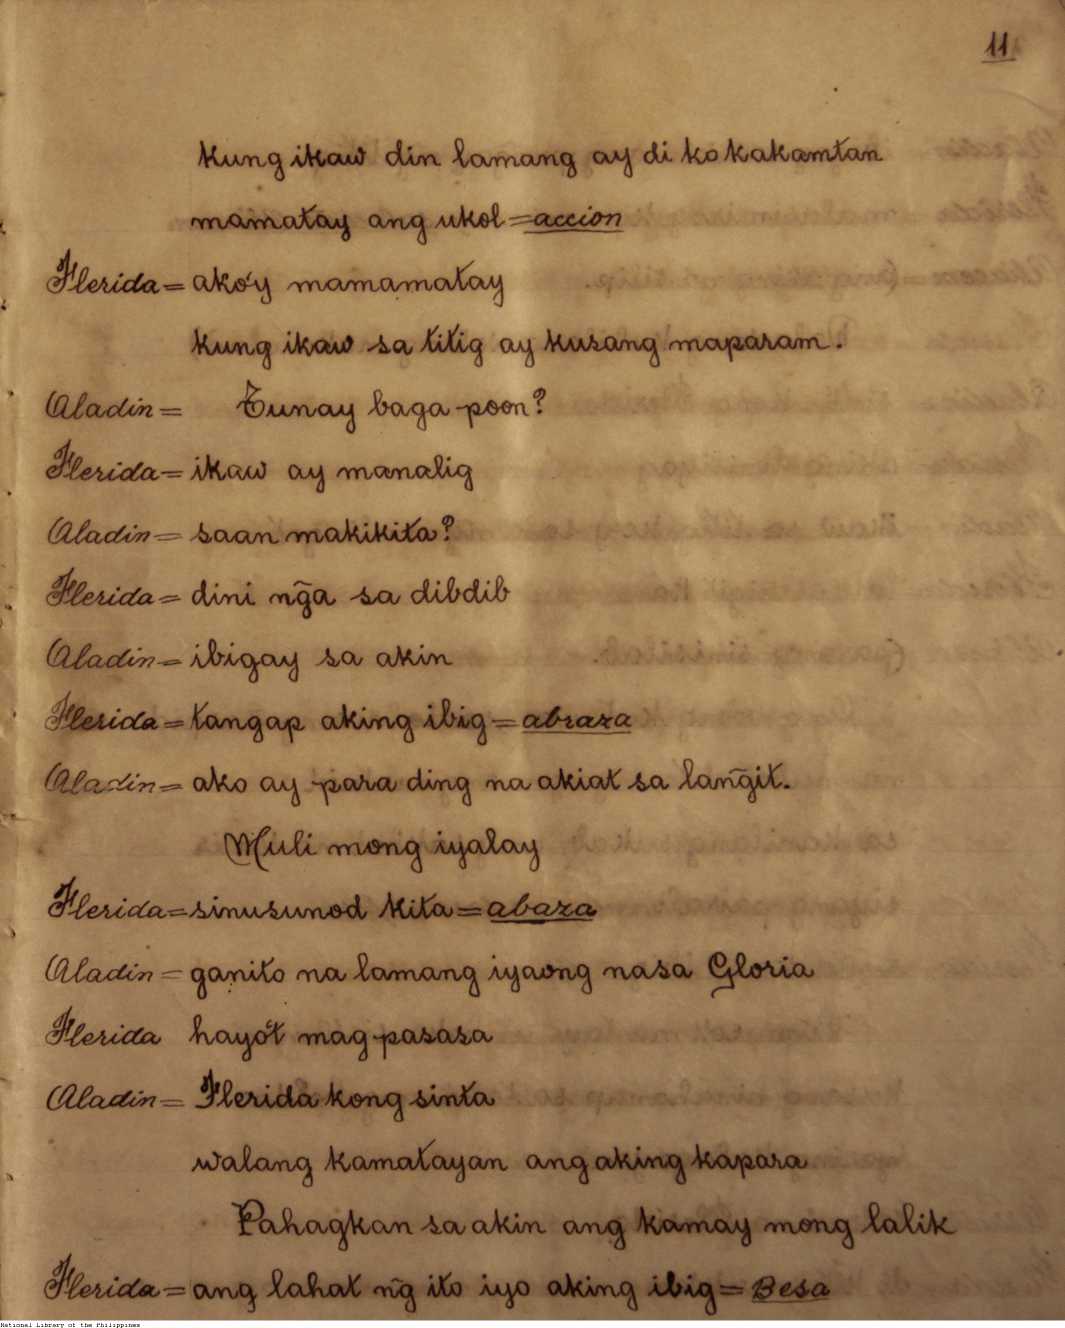 11
kung ikaw din lamang ay di ko kakamtan
mamatay ang ukol = accion
Flerida = ako'y mamamatay
kung ikaw sa titig ay kusang maparam.
Aladin = Tunay baga poon?
Flerida = ikaw ay manalig
Aladin = saan makikita?
Flerida = dini ng̃a sa dibdib
Aladin = ibigay sa akin
Flerida = tangap aking ibig = abraza
Aladin = ako ay para ding na akiat sa lang̃it.
Muli mong iyalay
Flerida = sinusunod kita = abaza
Aladin = ganito na lamang iyaong nasa Gloria
Flerida hayo't mag-pasasa
Aladin = Flerida kong sinta
walang kamatayan ang aking kapara
Pahagkan sa akin ang kamay mong lalik
Flerida = ang lahat ng̃ ito iyo aking ibig = Besa
National Library of the Philippines